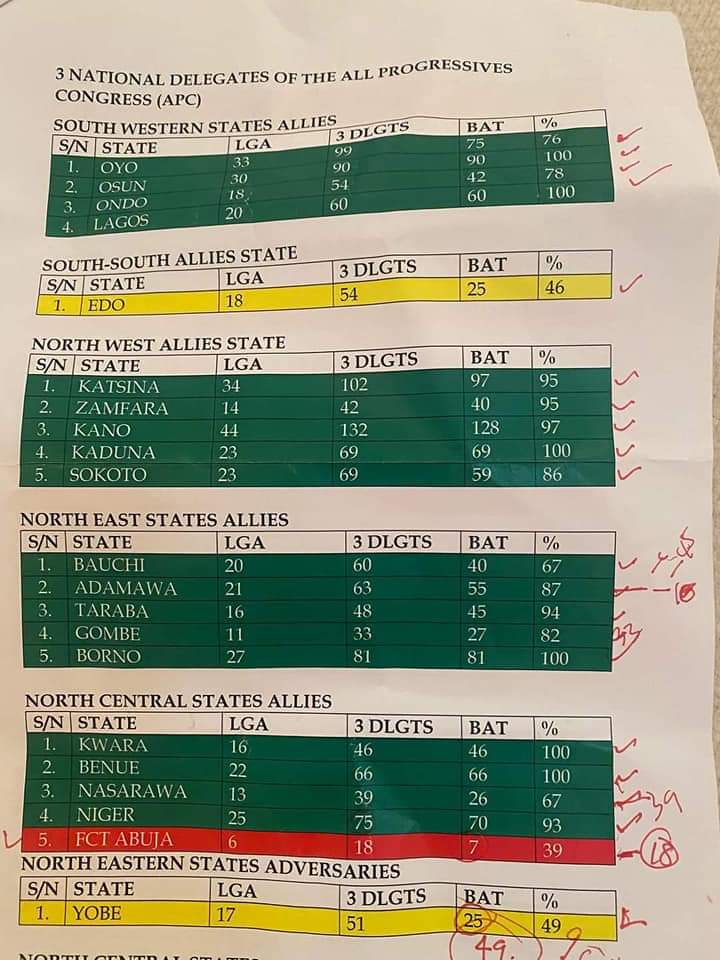 3 NATIONAL DELEGATES OF THE ALL PROGRESSIVES
CONGRESS (APC)
SOUTH WESTERN STATES ALLIES
S/N STATE LGA 3 DLGTS BAT %
1. OYO 33 99 75 76
2. OSUN 30 90 90 100
3. ONDO 18 54 42 78
4. LAGOS 20 60 60 100
SOUTH-SOUTH ALLIES STATE
S/N STATE LGA 3 DLGTS BAT %
1. EDO 18 54 25 46
NORTH WEST ALLIES STATE
S/N STATE LGA 3 DLGTS BAT %
1. KATSINA 34 102 97 95
2. ZAMFARA 14 42 40 95
3. KANO 44 132 128 97
4. KADUNA 23 69 69 100
5. SOKOTO 23 69 59 86
NORTH EAST STATES ALLIES
S/N STATE LGA 3 DLGTS BAT %
1. BAUCHI 20 60 40 67
2. ADAMAWA 21 63 55 87
3. TARABA 16 48 45 94
4. GOMBE 11 33 27 82
5. BORNO 27 81 81 100
NORTH CENTRAL STATES ALLIES
S/N STATE LGA 3 DLGTS BAT %
1. KWARA 16 46 46 100
2. BENUE 22 66 66 100
3. NASARAWA 13 39 26 67 39
4. NIGER 25 75 70 93
5. FCT ABUJA 6 18 7 39 18
NORTH EASTERN STATES ADVERSARIES
S/N STATE LGA 3 DLGTS BAT %
1. YOBE 17 51 25 49
49.